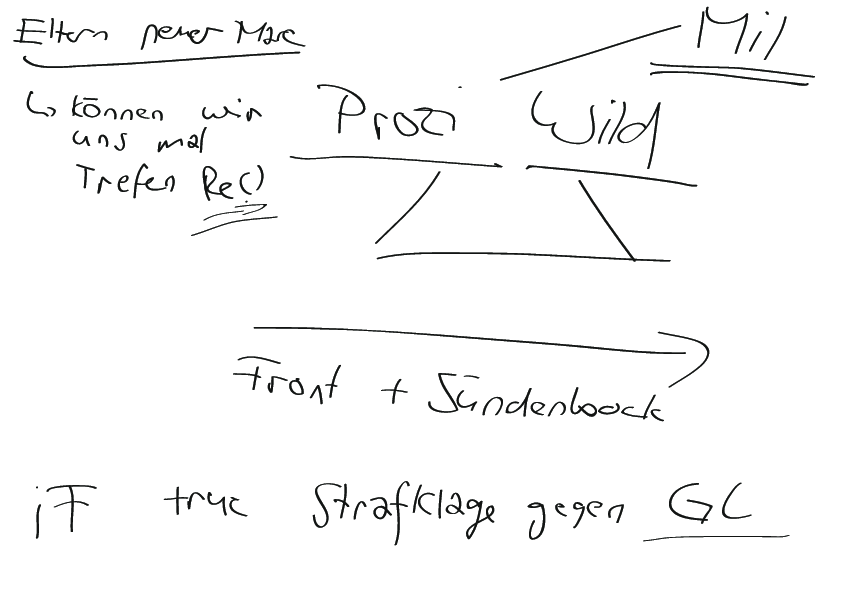 Eltern neuer Marc
↳ können wir
uns mal
Trefen Re()
Mil
Prozi Wild
Front + Sündenboock
if true Strafklage gegen GC